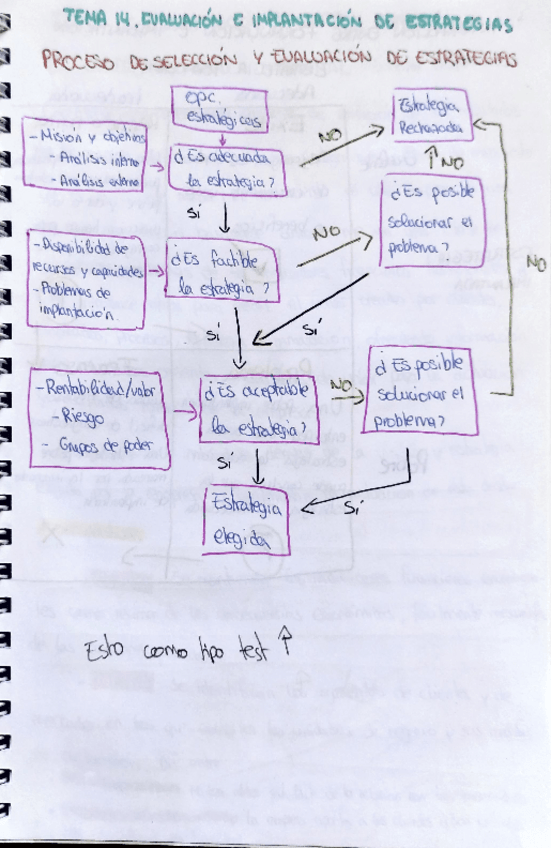 TEMA 14. EVALUACIÓN E IMPLANTACIÓN DE ESTRATEGIAS
PROCESO DE SELECCIÓN Y EVALUACIÓN DE ESTRATEGIAS
opc.
estratégicas
Estrategia
Rechazada
- Misión y objetivos
- Análisis interno
- Análisis externo
¿Es adecuada
la estrategia?
NO
NO
SÍ
¿Es posible
solucionar el
problema?
- Disponibilidad de
recursos y capacidades
- Problemas de
implantación
¿Es factible
la estrategia?
NO
NO
SÍ
SÍ
- Rentabilidad/valor
- Riesgo
- Grupos de poder
¿Es aceptable
la estrategia?
NO
¿Es posible
solucionar el
problema?
SÍ
SÍ
Estrategia
elegida
Esto como tipo test ↑